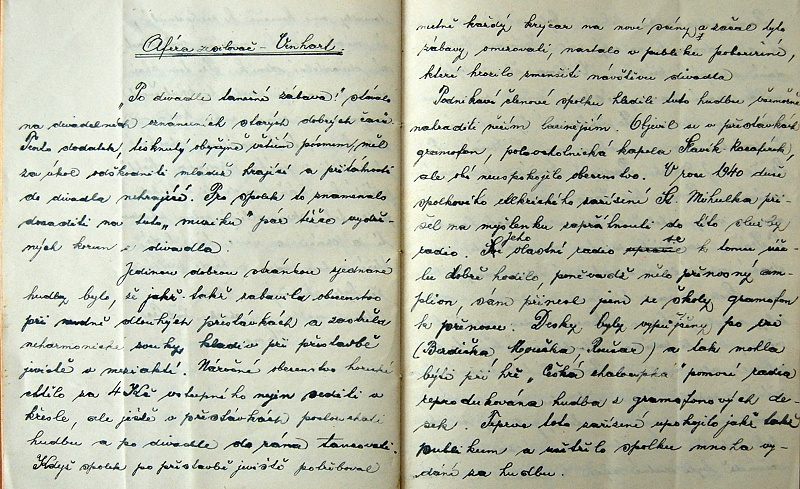 Aféra zesilovač - Urnhart.
„Po divadle taneční zábava!" stávalo
na divadelních oznámeních starých dobrých časů.
Tento dodatek, tisknutý obyčejně větším písmem, měl
za úkol odškodniti mládež hrající a přitáhnouti
do divadla nehrající. Pro spolek to znamenalo
dosaditi na tuto „muziku" pár těžce vyděl-
ných korun z divadla.
Jedinou dobrou stránkou zjednané
hudby bylo, že jakž takž zabavila obecenstvo
při nudně dlouhých přestávkách a zastřela
neharmonické zvuky kladiv při přestavbě
jeviště v meziaktí. Naročné obecenstvo horické
chtělo za 4 Kč vstupného nejen seděti v
křesle, ale ještě v přestávkách poslouchati
hudbu a po divadle do rána tancovati.
Když spolek po přístavbě jeviště potřeboval
nutně každý krejcar na nové scény a začal tyto
zábavy omezovati, nastalo v publiku pobouření,
které hrozilo zmenšiti návštěvu divadla
Podnikaví členové spolku hleděli tuto hudbu všemožně
nahraditi něčím lacinějším. Objevil se v přestávkách
gramofon, polovochotnická kapela Slavík
ale vše neuspokojilo obecenstvo. V roce 1940 duše
spolkového elektrického zařízení St. Mihulka při-
šel na myšlenku zapřáhnouti do této služby
radio. Jeho vlastní radio se k tomu úče-
lu dobře hodilo, poněvadž mělo přenosný am-
plion, sám přinesl jsem ze školy gramofon
k přenosce. Desky byly vypůjčeny po
(Bardička, Kopuška, Roušar) a tak mohla
býti při hře „Česká chaloupka" pomocí radia
reprodukována hudba s gramofonových de-
sek. Teprve toto zařízení uspokojilo jakž takž
publikum a ušetřilo spolku mnoha vy-
dání za hudbu.